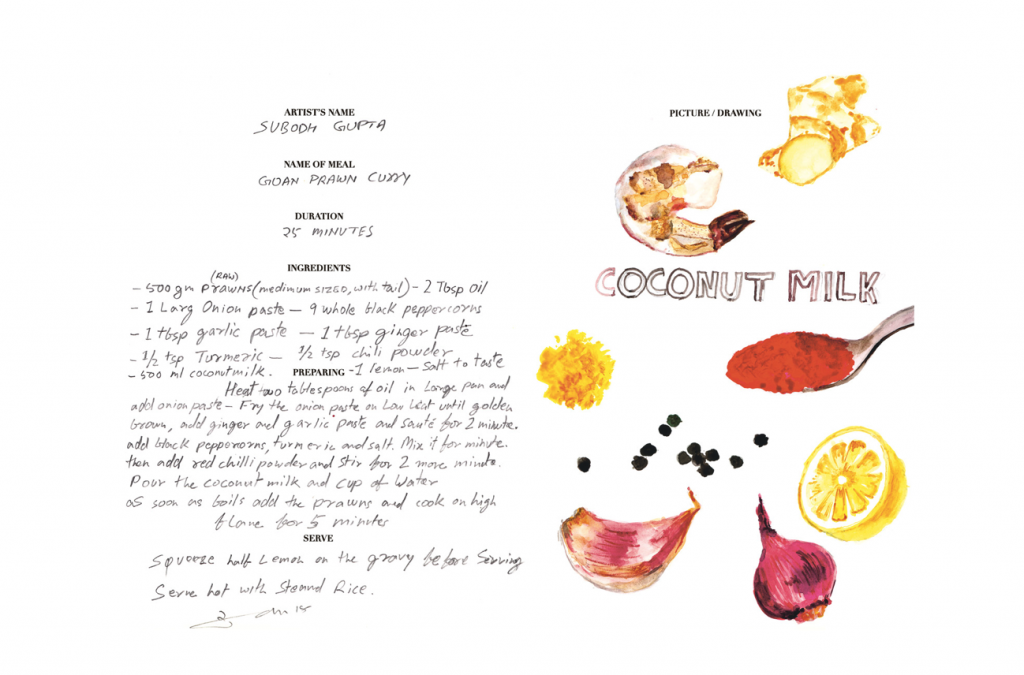 ARTIST'S NAME
SUBODH GUPTA
NAME OF MEAL
GOAN PRAWN CURRY
DURATION
25 MINUTES
INGREDIENTS
(RAW)
- 500 gm PRAWNS (medimum SIZED, with tail) - 2 Tbsp Oil
- 1 Larg Onion paste - 9 whole black peppercorns
- 1 tbsp garlic paste - 1 tbsp ginger paste
- 1/2 tsp Turmeric - 1/2 tsp chili powder
- 500 ml coconutmilk. - 1 lemon - Salt to taste
PREPARING
Heat two tablespoons of oil in Large pan and
add onion paste - Fry the onion paste on Low heat until golden
brown, add ginger and garlic paste and sauté for 2 minute.
add black peppercorns, turmeric and salt. Mix it for minute.
then add red chilli powder and stir for 2 more minute.
Pour the coconut milk and cup of water
as soon as boils add the prawns and cook on high
flame for 5 minutes
SERVE
Squeeze half Lemon on the gravy before Serving
Serve hot with Steamed Rice.
PICTURE / DRAWING
COCONUT MILK